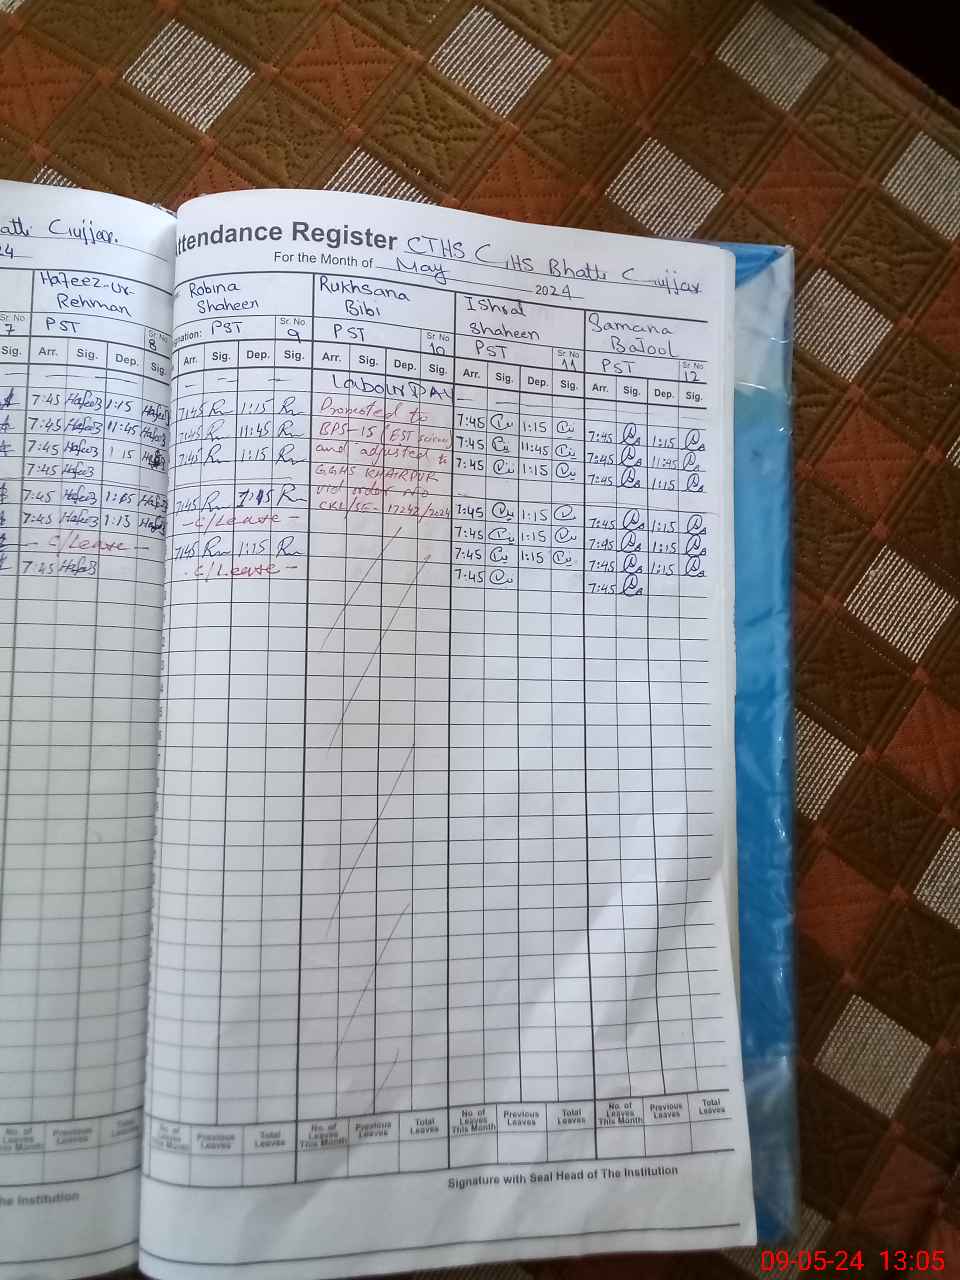 Attendance Register GTHS GHS Bhatti Gujjar
For the Month of May 2024
atti Gujjar.
24
Hafeez-ur-
Rehman
PST
Sr. No
7
Sr. No
8
Sig. Arr. Sig. Dep. Sig.
7:45 Hafeez 1:15 Hafeez
7:45 Hafeez 11:45 Hafeez
7:45 Hafeez 1:15
7:45 Hafeez
7:45 Hafeez 1:15 Hafeez
7:45 Hafeez 1:15 Hafeez
- C/Leave -
7:45 Hafeez
Robina
Shaheen
gnation: PST
Sr. No
9
Arr. Sig. Dep. Sig.
7:45 1:15
7:45 11:45
7:45 1:15
7:45
- C/Leave -
7:45 1:15
- C/Leave -
Rukhsana
Bibi
PST
Sr. No
10
Arr. Sig. Dep. Sig.
Labour DAY
Promoted to
BPS-15 (EST science)
and adjusted to
GGHS
vid order No
17242/2024
Ishrat
Shaheen
PST
Sr No
11
Arr. Sig. Dep. Sig.
7:45 1:15
7:45 11:45
7:45 1:15
7:45 1:15
7:45 1:15
7:45 1:15
7:45
Samana
Batool
PST
Sr No
12
Arr. Sig. Dep. Sig.
7:45 1:15
7:45 11:45
7:45 1:15
7:45 1:15
7:45 1:15
7:45 1:15
7:45
No. of Leaves This Month Previous Leaves
No. of Leaves This Month Previous Leaves Total Leaves
No. of Leaves This Month Previous Leaves Total Leaves
No. of Leaves This Month Previous Leaves Total Leaves
No. of Leaves This Month Previous Leaves Total Leaves
he Institution
Signature with Seal Head of The Institution
09-05-24 13:05